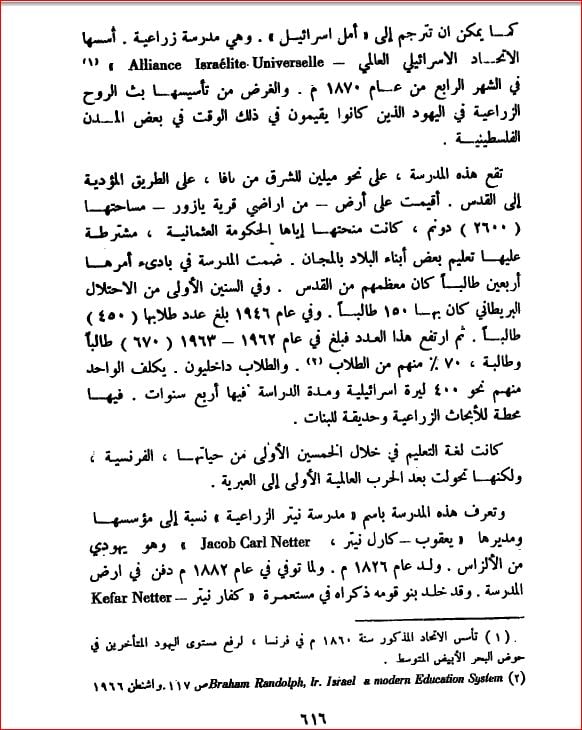 كما يمكن ان تترجم إلى « أمل اسرائيل » . وهي مدرسة زراعية . أسسها
الاتحاد الاسرائيلي العالمي – Alliance Israélite Universelle » (١)
في الشهر الرابع من عام ١٨٧٠ م . والغرض من تأسيسها بث الروح
الزراعية في اليهود الذين كانوا يقيمون في ذلك الوقت في بعض المدن
الفلسطينية .
تقع هذه المدرسة ، على نحو ميلين للشرق من يافا ، على الطريق المؤدية
إلى القدس . أقيمت على أرض – من اراضي قرية يازور – مساحتها
( ٢٦٠٠ ) دونم ، كانت منحتها إياها الحكومة العثمانية ، مشترطة
عليها تعليم بعض أبناء البلاد بالمجان . ضمت المدرسة في بادىء أمرها
أربعين طالباً كان معظمهم من القدس . وفي السنين الأولى من الاحتلال
البريطاني كان بها ١٥٠ طالباً . وفي عام ١٩٤٦ بلغ عدد طلابها ( ٤٥٠ )
طالباً . ثم ارتفع هذا العدد فبلغ في عام ١٩٦٢ – ١٩٦٣ ( ٦٧٠ ) طالباً
وطالبة ، ٧٠ ٪ منهم من الطلاب (٢) . والطلاب داخليون . يكلف الواحد
منهم نحو ٤٠٠ ليرة اسرائيلية ومدة الدراسة فيها أربع سنوات . فيها
محطة للأبحاث الزراعية وحديقة للبنات .
كانت لغة التعليم في خلال الخمسين الأولى من حياتها ، الفرنسية ،
ولكنها تحولت بعد الحرب العالمية الأولى إلى العبرية .
وتعرف هذه المدرسة باسم « مدرسة نيتر الزراعية » نسبة إلى مؤسسها
ومديرها « يعقوب – كارل نيتر ، Jacob Carl Netter » وهو يهودي
من الألزاس . ولد عام ١٨٢٦ م . ولما توفي في عام ١٨٨٢ م دفن في ارض
المدرسة . وقد خلد بنو قومه ذكراه في مستعمرة « كفار نيتر – Kefar Netter
(١) تأسس الاتحاد المذكور سنة ١٨٦٠ م في فرنسا ، لرفع مستوى اليهود المتأخرين في
حوض البحر الأبيض المتوسط .
(٢) Braham Randolph, Ir. Israel a modern Education System ص ١١٧ . واشنطن ١٩٦٦
٦١٦